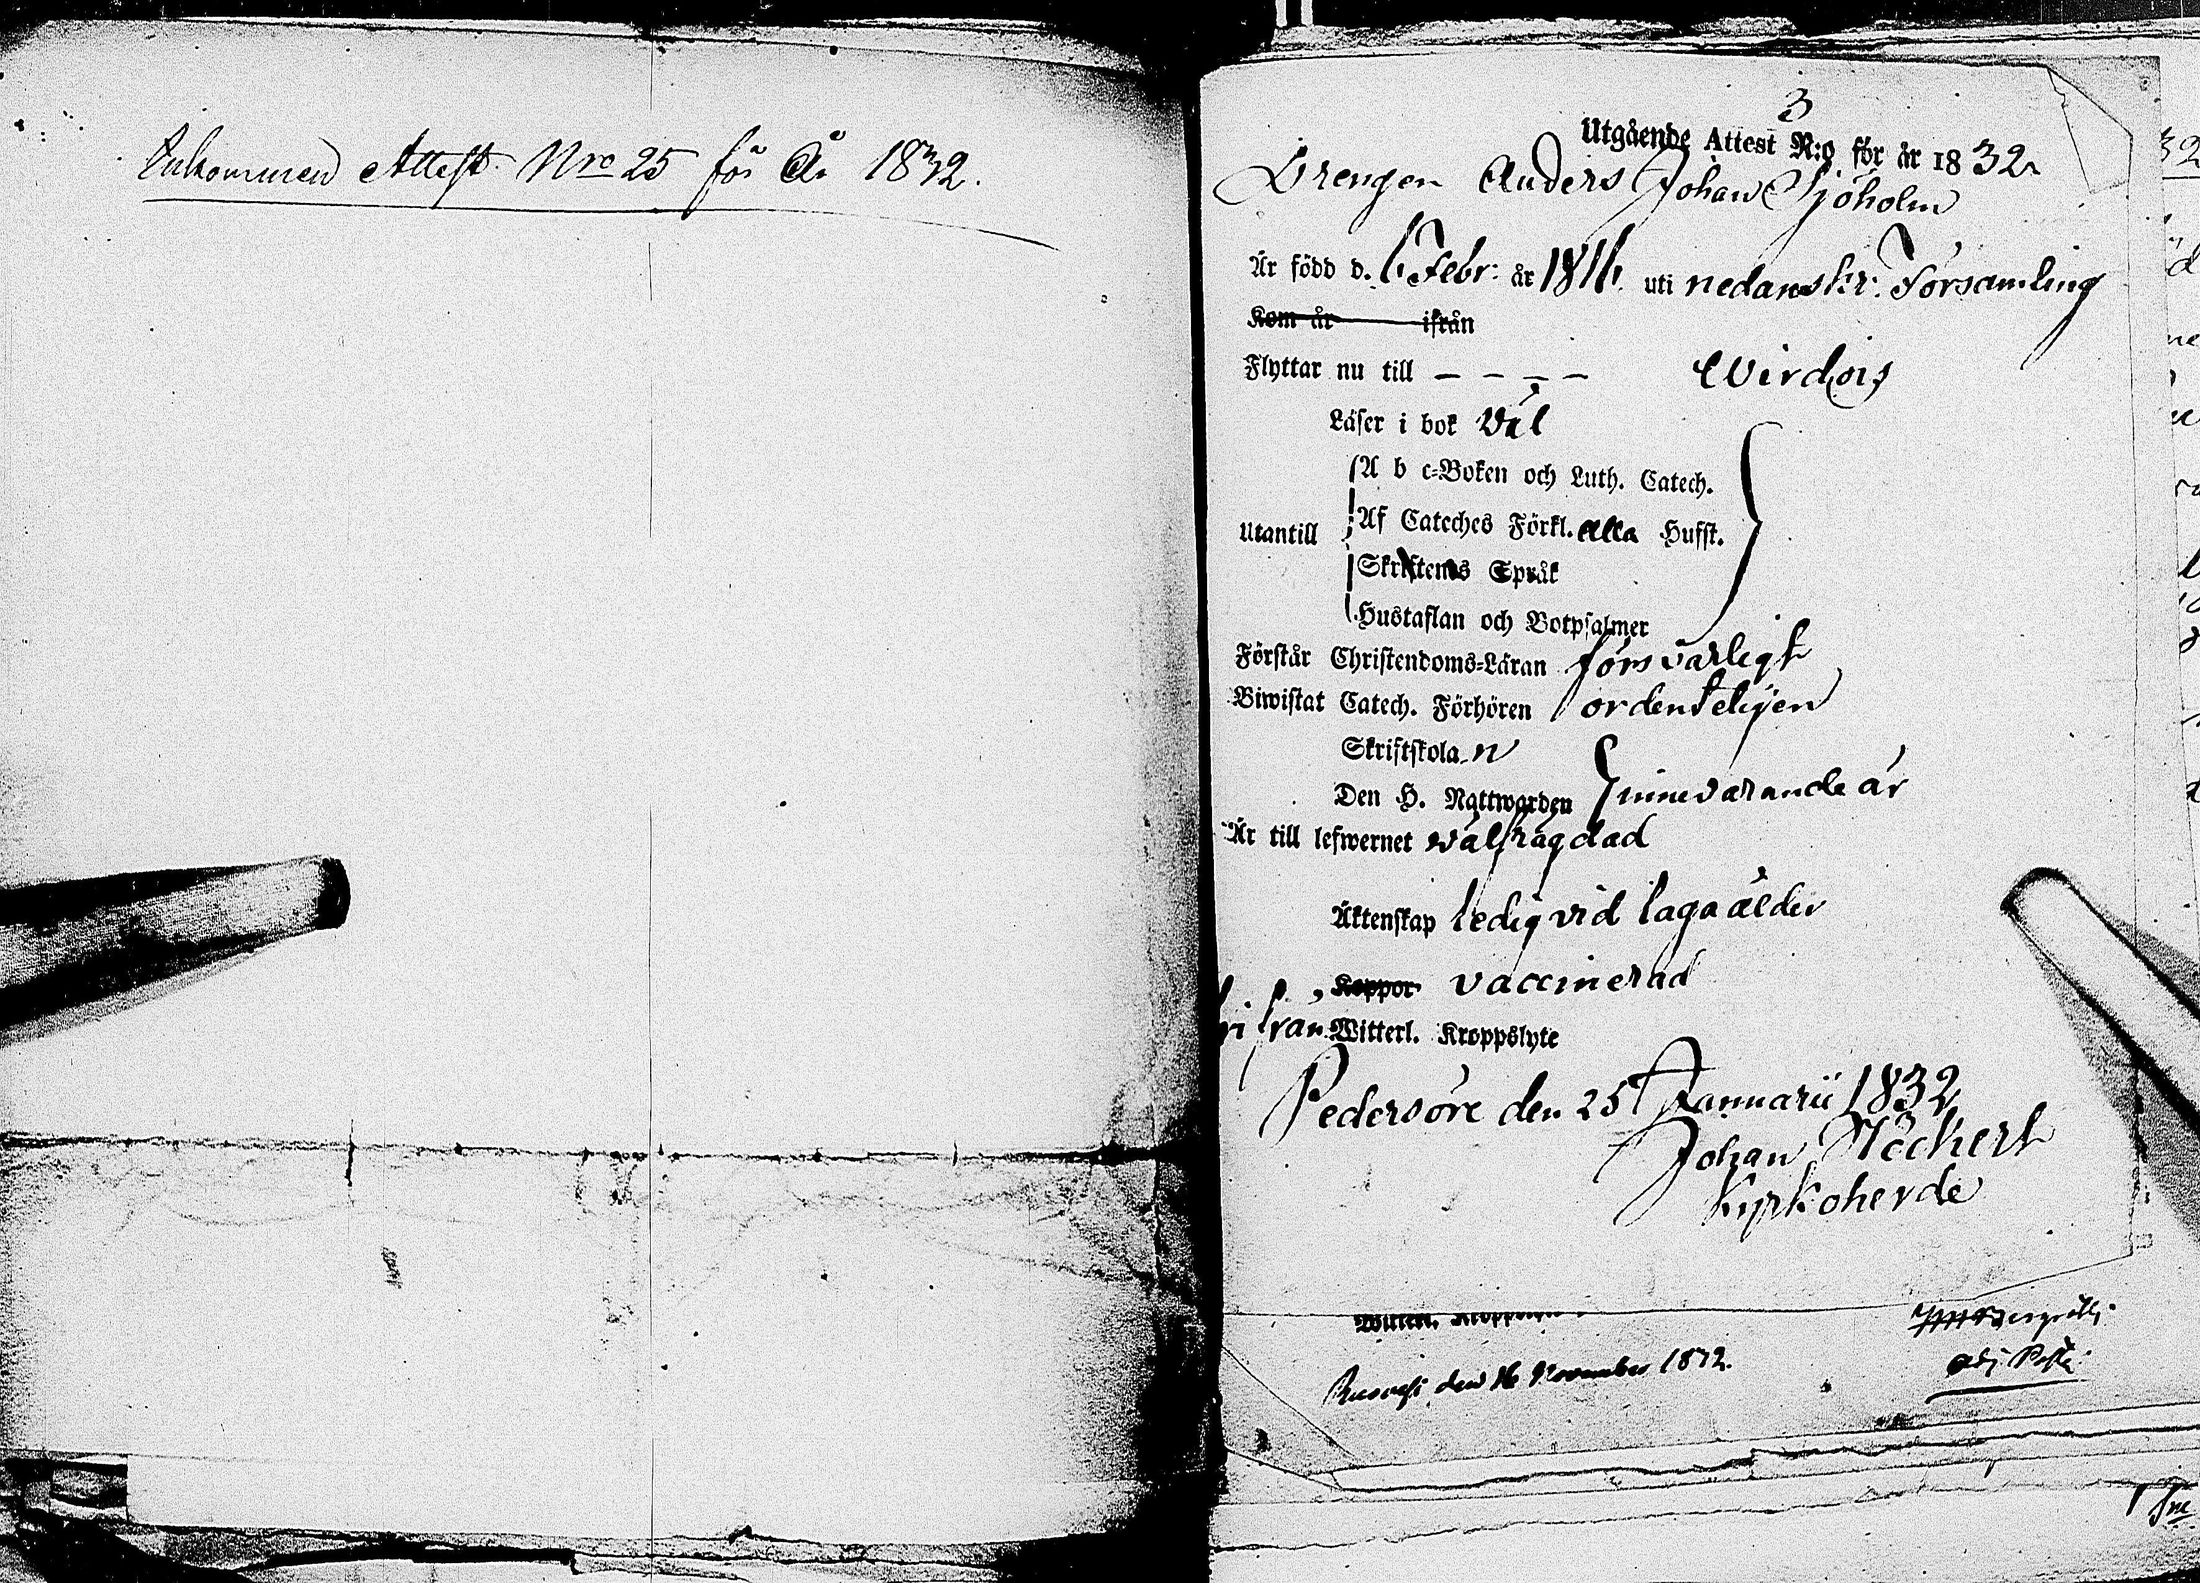 Inkommen Attest Nro 25 för År 1832.
3
Utgående Attest N:o för år 1832
Drengen Anders Johan Sjöholm
Är född d. 6 Febr: år 1816. uti nedanskr. Församling
Kom år ifrån
Flyttar nu till – – – – Wirdois
Läser i bok väl
A b c-Boken och Luth. Catech.
Utantill Af Cateches Förkl. alla Hufst.
Skriftenes Språk
Hustaflan och Botpsalmer
Förstår Christendoms-Läran försvarligt
Biwistat Catech. Förhören ordenteligen
Skriftskola n
Den H. Nattwarden innevarande år
Är till lefwernet välfrägdad
Äktenskap ledig vid laga ålder
Koppor vaccinerad
fri från Witterl. Kroppslyte
Pedersöre den 25 Januarii 1832
Johan Höckert
Kyrkoherde
Witterl. Kroppslyte
den 16 November 1872.
adj.